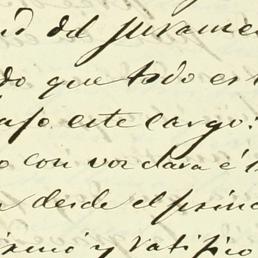 del jurame
do que todo es
este cargo:
con voz clara é
desde el prin
y ratifico